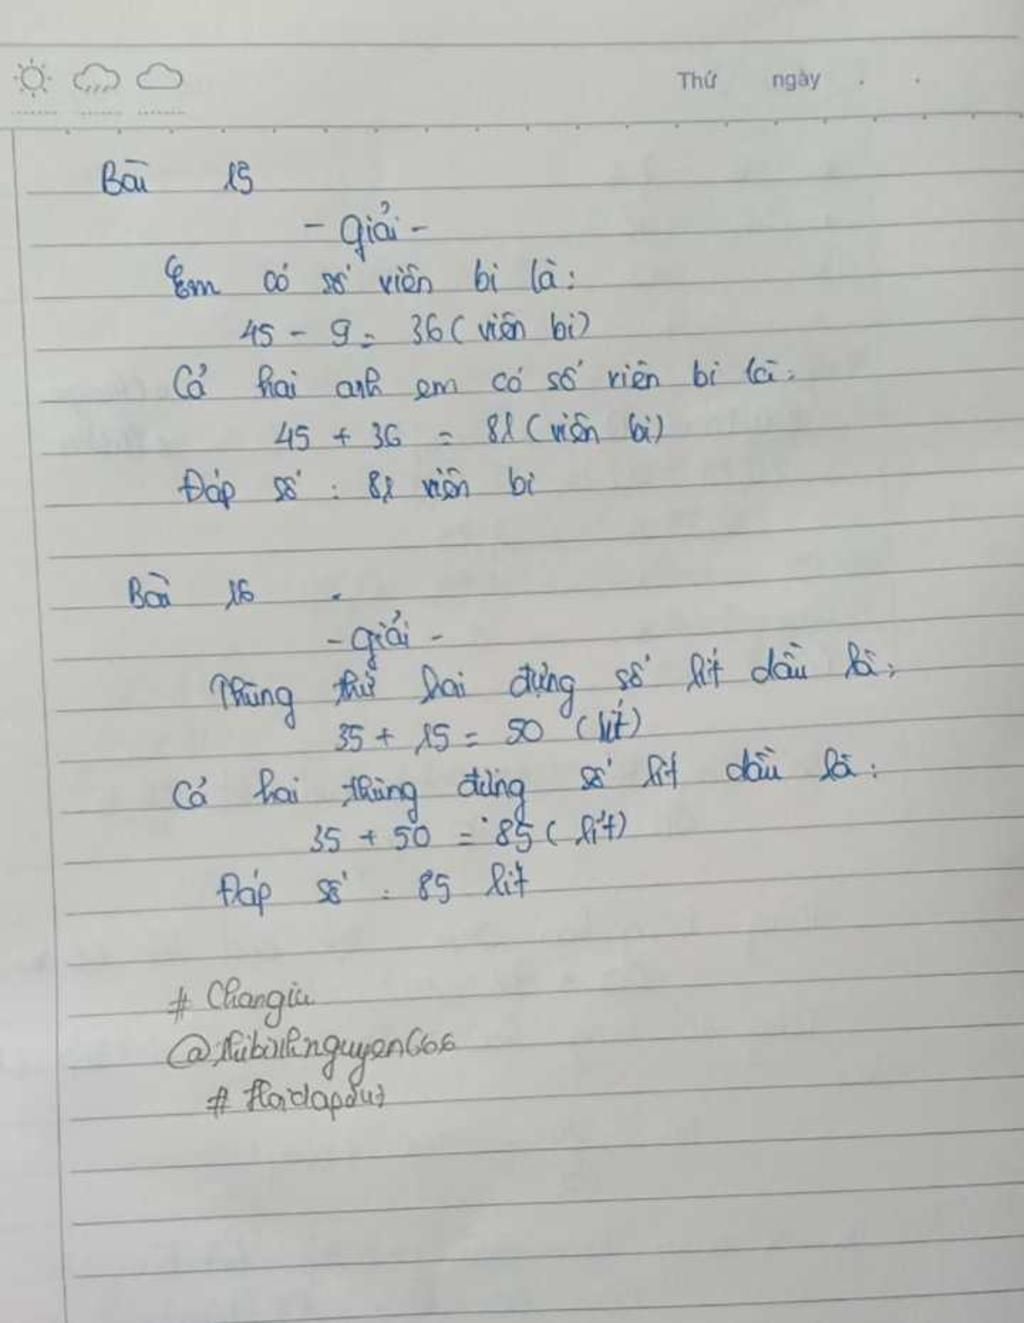 Thứ ngày
Bài 15
- Giải -
Em có số viên bi là:
45 - 9 = 36 (viên bi)
Cả hai anh em có số viên bi là:
45 + 36 = 81 (viên bi)
Đáp số : 81 viên bi
Bài 16
- Giải -
Thùng thứ hai đựng số lít dầu là:
35 + 15 = 50 (lít)
Cả hai thùng đựng số lít dầu là:
35 + 50 = 85 (lít)
Đáp số : 85 lít
# Changiu